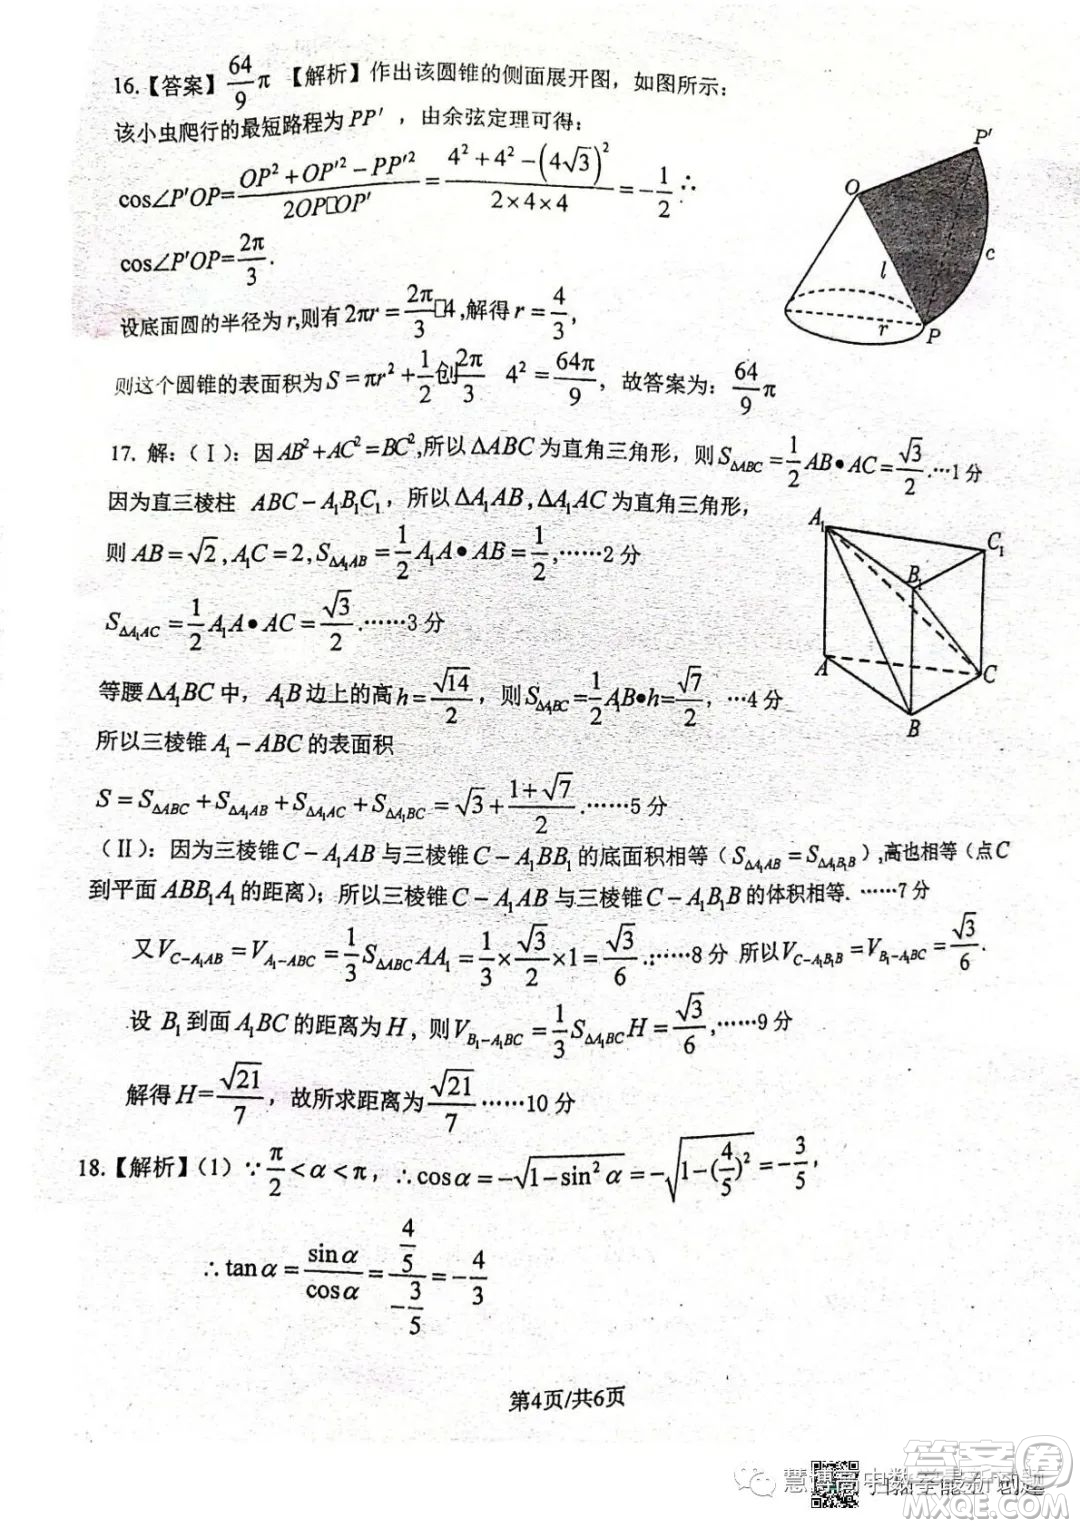 16.【答案】64/9 π 【解析】作出该圆锥的侧面展开图，如图所示：
该小虫爬行的最短路程为PP′，由余弦定理可得：
cos∠P′OP=(OP²+OP′²−PP′²)/(2OP□OP′)=(4²+4²−(4√3)²)/(2×4×4)=−1/2∴
cos∠P′OP=2π/3.
设底面圆的半径为r,则有2πr=2π/3□4,解得r=4/3，
则这个圆锥的表面积为S=πr²+1/2创2π/3 4²=64π/9，故答案为：64/9 π
O P′ l c r P
17. 解：(Ⅰ)：因AB²+AC²=BC²,所以ΔABC为直角三角形，则S_ΔABC=1/2 AB•AC=√3/2.…1分
因为直三棱柱 ABC−A₁B₁C₁，所以ΔA₁AB,ΔA₁AC为直角三角形，
则AB=√2,A₁C=2,S_ΔA₁AB=1/2 A₁A•AB=1/2,……2分
S_ΔA₁AC=1/2 A₁A•AC=√3/2.……3分
等腰ΔA₁BC中，A₁B边上的高h=√14/2，则S_ΔA₁BC=1/2 A₁B•h=√7/2，…4分
所以三棱锥A₁−ABC的表面积
S=S_ΔABC+S_ΔA₁AB+S_ΔA₁AC+S_ΔA₁BC=√3+(1+√7)/2.……5分
A₁ C₁ B₁ A C B
(Ⅱ)：因为三棱锥C−A₁AB与三棱锥C−A₁BB₁的底面积相等（S_ΔA₁AB=S_ΔA₁B₁B）,高也相等（点C
到平面ABB₁A₁的距离）；所以三棱锥C−A₁AB与三棱锥C−A₁B₁B的体积相等.……7分
又V_C−A₁AB=V_A₁−ABC=1/3 S_ΔABC AA₁=1/3×√3/2×1=√3/6.:……8分 所以V_C−A₁B₁B=V_B₁−A₁BC=√3/6.
设B₁到面A₁BC的距离为H，则V_B₁−A₁BC=1/3 S_ΔA₁BC H=√3/6,……9分
解得H=√21/7，故所求距离为√21/7……10分
18.【解析】（1）∵π/2<α<π，∴cosα=−√(1−sin²α)=−√(1−(4/5)²)=−3/5，
∴tanα=sinα/cosα=(4/5)/(−3/5)=−4/3
第4页/共6页
答案圈
MXQE.COM